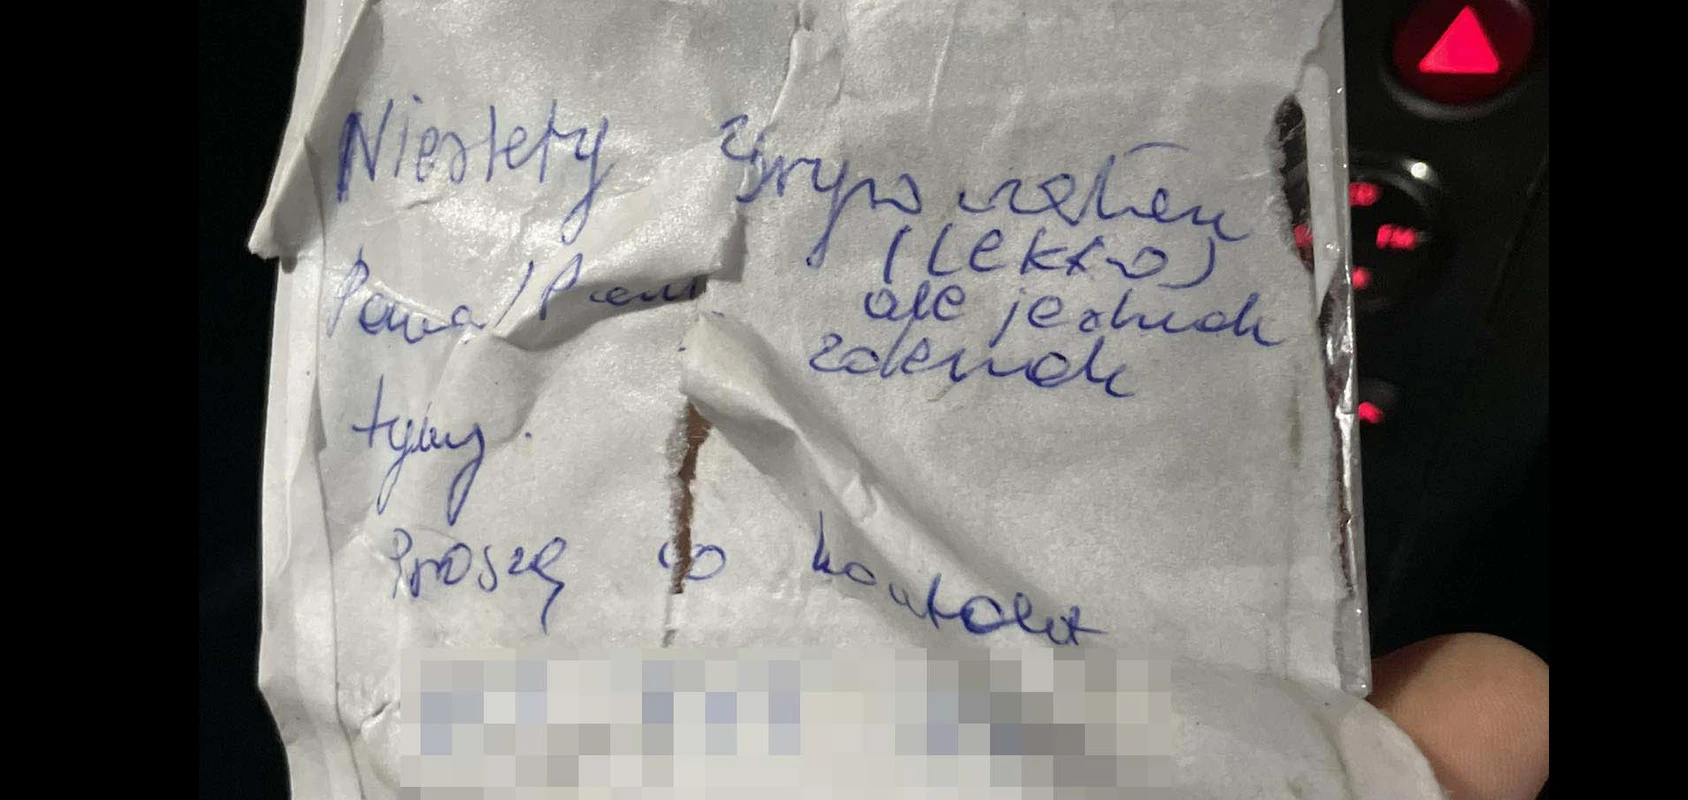 Niestety zarysowałem
(lekko)
Pana/Pani ale jednak
zderzak
tylny.
Proszę o kontakt